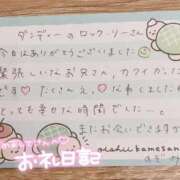 ダンディーのロック・リーさん
今日はありがとうございました
緊張しいなお兄さん、カワイかった
たくさんえ、なれましたね
とっても幸せな時間でした…。
またお会いできますか
oishii kamesan
お礼日記